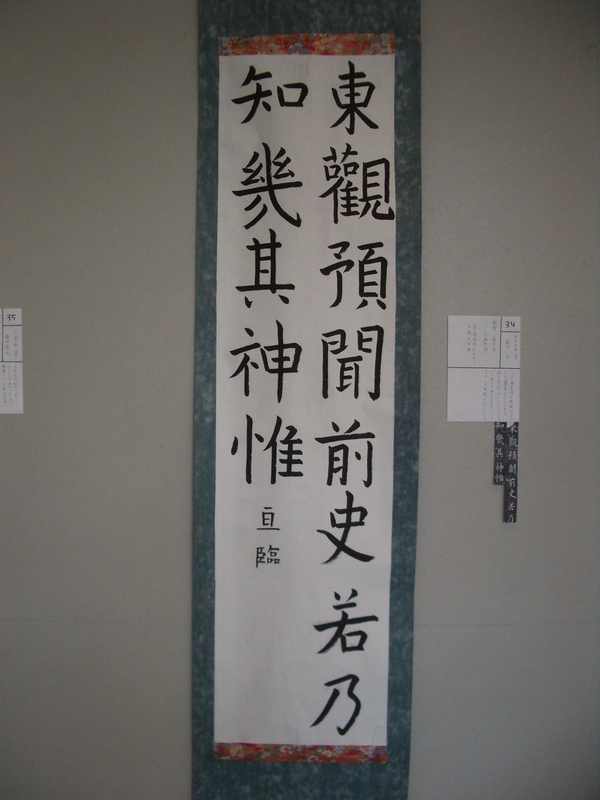 東觀預聞前史若乃
知幾其神惟
亘臨
34
東觀預聞前史若乃
知幾其神惟
35